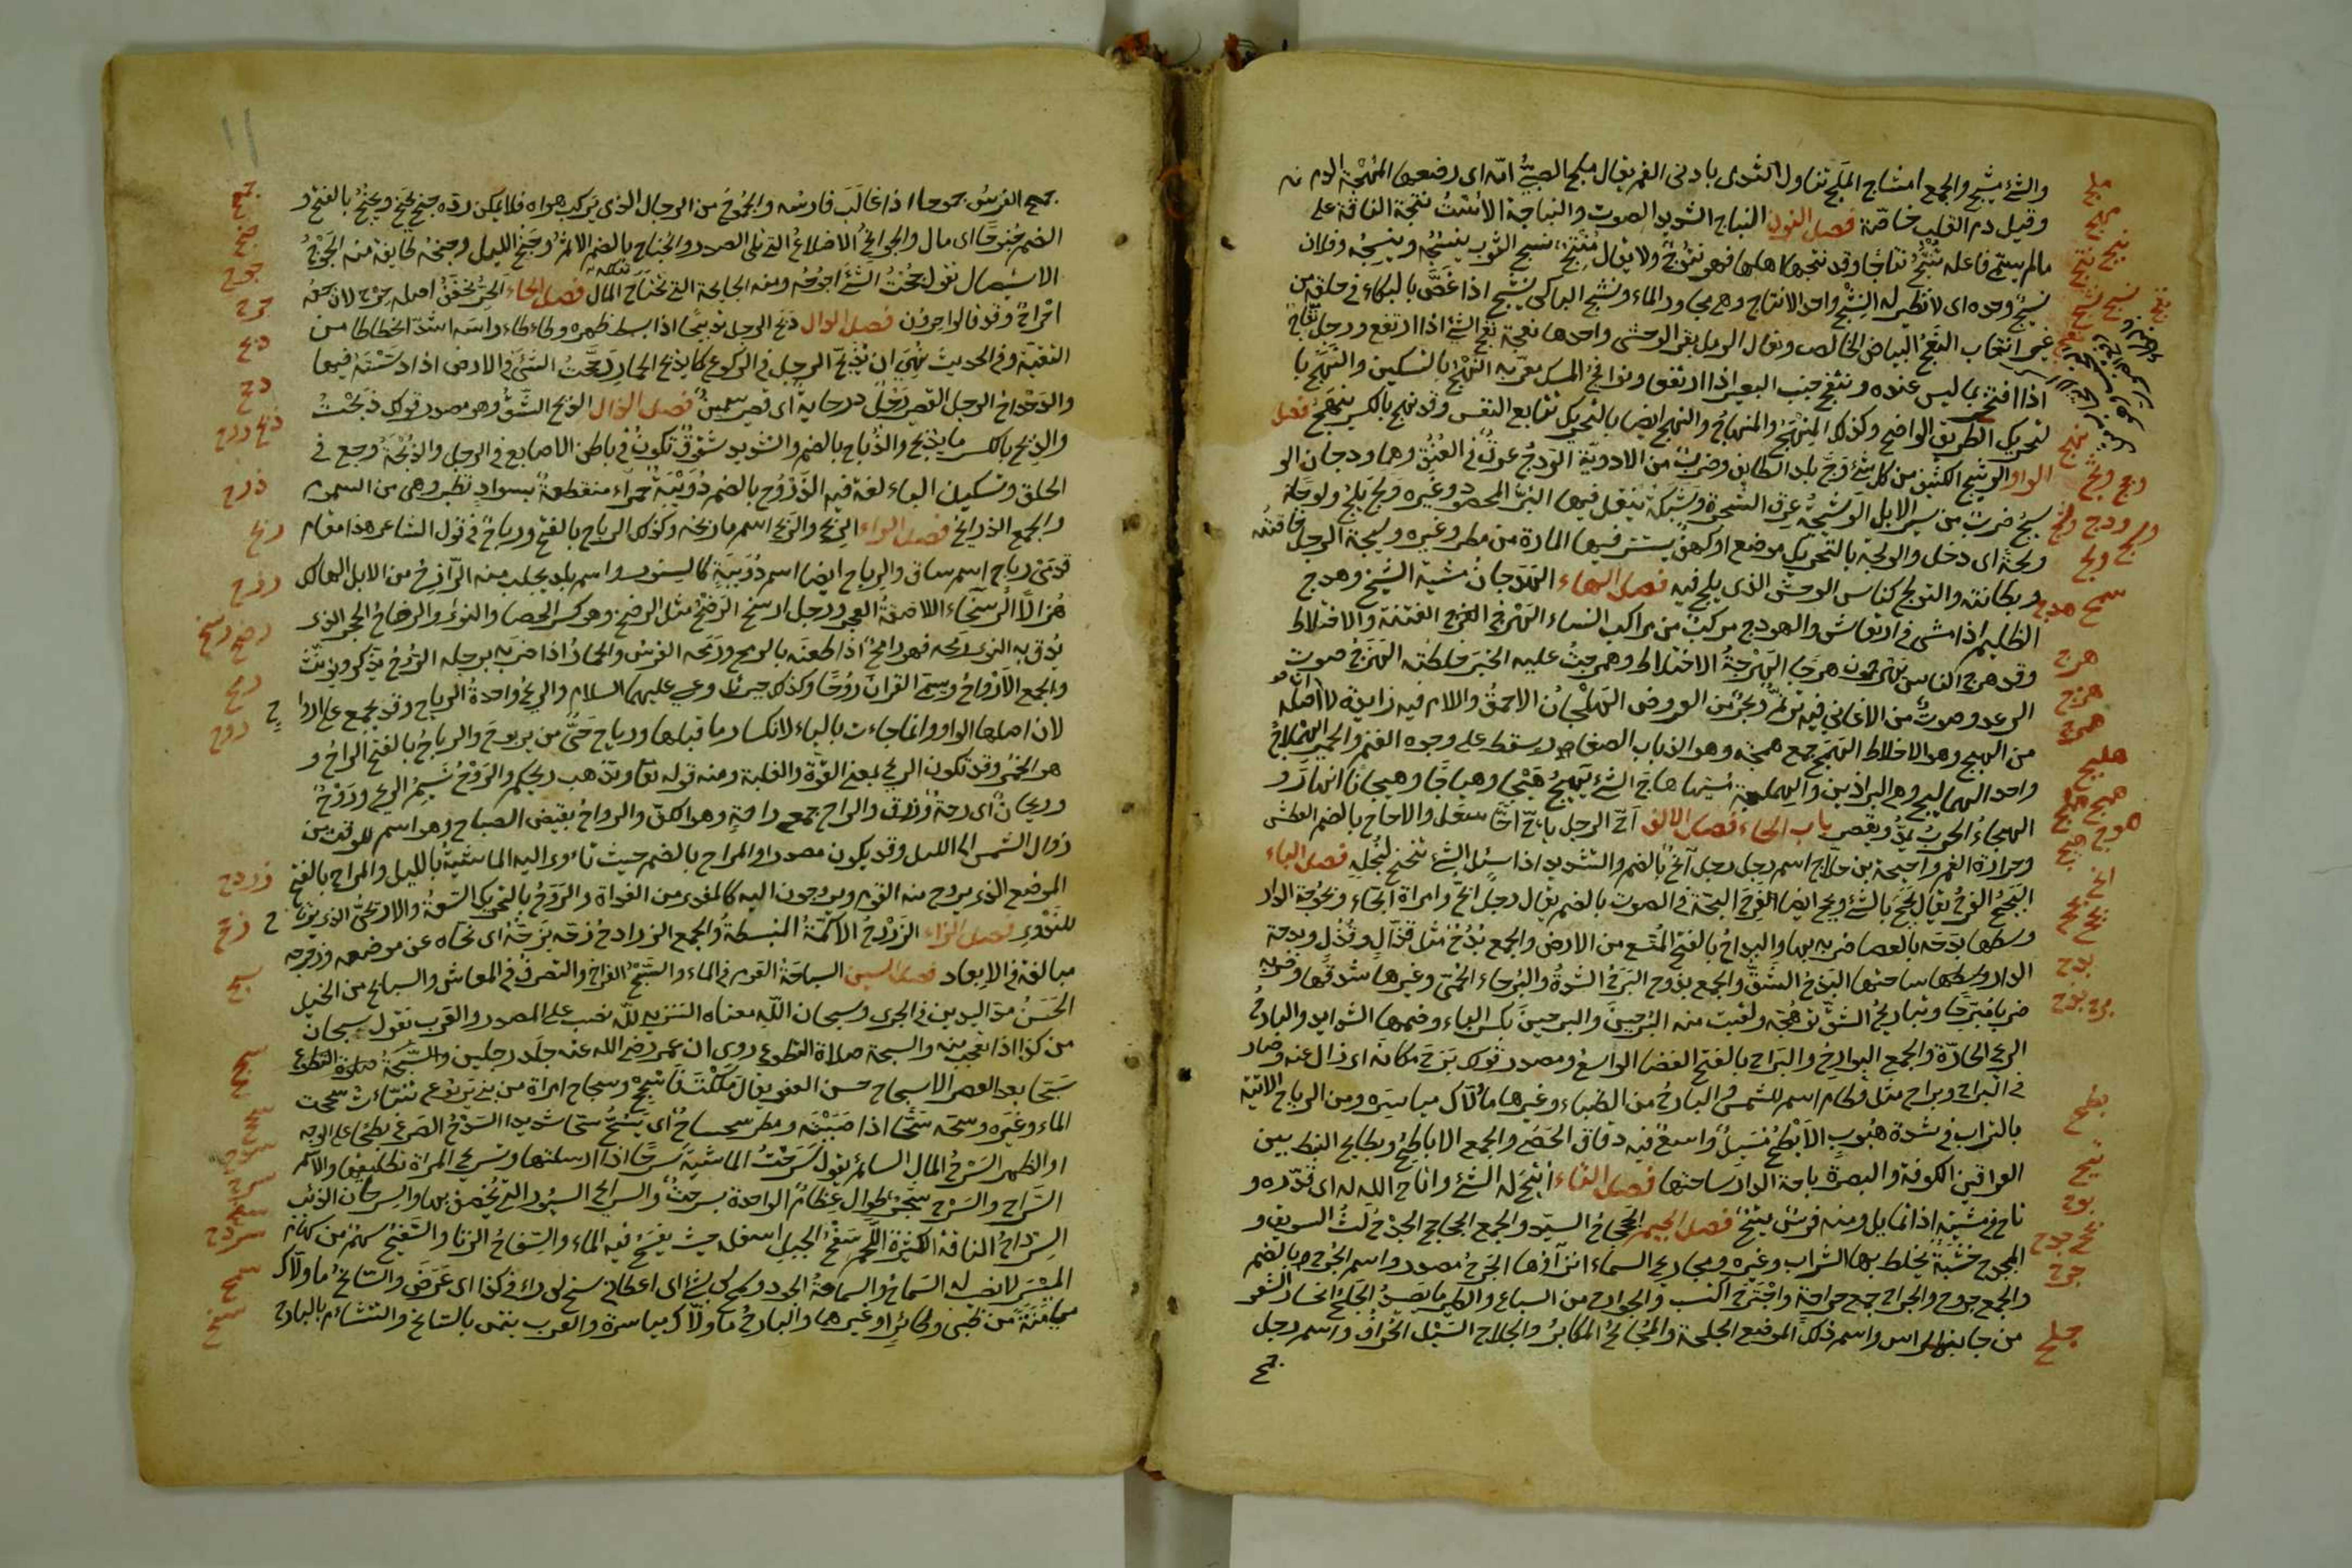 والشئ مشيج والجمع امشاج الملج تناول الثدى بادنى الفم يقال ملج الصبىُّ امّه اى رضعها المُهْجة الدم
وقيل دم القلب خاصّة فصل النون النباج الشديد الصوت والنباجة الاست نتجة الناقة على
مالم يسمّ فاعله تُنْتَجُ نتاجًا وقد نتجها اهلها فهو منتوج ولا يقال مُنتِج نسج الثوب ينسُجُه وينسِجُه وفلان
نسيجُ وحده اى لا نظير له النشج واحد الانشاج وهى مجارى الماء ونشج الباكى ينشج اذا غصّ بالبكاء فى حلقه من
غير انتحاب النعَج البياض الخالص ونعاج الرمل بقر الوحش واحدها نعجة نفج الشئ اذا ارتفع ورجل نفّاج
اذا افتخر بما ليس عنده وانتفج جنب البعير اذا ارتفع ونوافج المسك معرّبه النهْج بالتسكين والنهَج با
لتحريك الطريق الواضح وكذلك المنهج والمنهاج والنهج ايضا بالتحريك تتابع النفس وقد نهج بالكسر ينهج فصل
الواو الوثيج الكثيف من كل شئ وجّ بلد الطائف وضرب من الادوية الودج عرق فى العنق وهما ودجان الو
سيج ضرب من سير الابل الوشيجة عرق الشجرة وشبكة ينقل فيها البُرّ المحصود وغيره ولج يلج ولوجًا
ولجة اى دخل والولجة بالتحريك موضع او كهف يستتر فيها المارة من مطر وغيره وليجة الرجل خاصّته
وبطانته والتولج كناس الوحش الذى يلج فيه فصل الهاء الهدجان مشية الشيخ وهدج
الظليم اذا مشى فى ارتعاش والهودج مركب من مراكب النساء الهرْج الفتنة والاختلاط
وقد هرج الناس يهرجون هرجا الهَرْجةُ الاختلاط وهمرجتُ عليه الخبر خلطته الهزَج صوت
الرعد وصوت من الاغانى فيه ترنم وبحر من العروض الهلباجة الاحمق واللام فيه زايدة لان اصله
من الهبج وهو الاختلاط الهمج جمع همجة وهو الذباب الصغار يسقط على وجوه الغنم والحمير الهملاجُ
واحد الهماليج وهى البراذين والهملجة مشيها هاج الشئ يهيج هيجا وهياجا وهيجانا اى ثار و
الهيجاءُ الحرب يمدّ ويقصر باب الحاء فصل الالف احّ الرجل يؤحّ احًّا سعل والاحاح بالضم العطش
وحرارة الغم واحيحة بن جلاح اسم رجل رجل آنح بالضم والتشديد اذا سئل الشئ تنحنح لبخله فصل الباء
البجح الفرح يقال بجح بالشئ وبجح ايضا الفرح البحّة فى الصوت بالضم يقال رجل ابحّ وامراة بحّاء وبحبوحة الدار
وسطها بدحه بالعصا ضربه بها والبداح بالفتح المتسع من الارض والجمع بُدُح مثل قذال وقُذُل وبيحة
الدار وسطها ساحتها البذح الشقّ والجمع بذوح البرح الشدة والبرحاء الحمّى وغيرها شدّتها وضربه
ضربا مبرّحا وتباريح الشوق توهّجه ولقيت منه البُرحين والبرحين بكسر الباء وضمها الشدايد والبارح
الريح الحارّة والجمع البوارح والبراح بالفتح الفضا الواسع ومصدر قولك برح مكانه اى زال عنه وصار
فى البراح وبراح مثل قطام اسم للشمس والبارح من الظباء وغيرها ما ولّاك مياسره ومن الرياح الاتية
بالتراب فى شدة هبوب الابطح مسيل واسع فيه دقاق الحصى والجمع الاباطح وبطايح النبط بين
العراقين الكوفة والبصرة باحة الدار ساحتها فصل التاء اتيح له الشئ واتاح الله له اى قدّره و
تاح فى مشيته اذا تمايل ومنه فرس متيح فصل الجيم الجحجاح السيّد والجمع الجحاجح الجدح لتّ السويق و
المجدح خشبة يخلط بها الشراب وغيره ومجاديح السماء انوآؤها الجرح مصدر واسم الجرح بالضم
والجمع جروح والجراح جمع جراحة واجترح اكتسب والجوارح من السباع والطير ما يصيد الجلح انحسار الشعر
من جانبى الراس واسم ذلك الموضع الجلحة والمجالح المكابر والجلاح السيل الجراف واسم رجل
جمح
ملج
مهج
نبج نتج
نسج نشج
نعج
نفج
نهج
وثج وجج
ودج وسج
وشج ولج
هدج
هرج
هزج
همرج
هلبج
همج هملج
هوج هيج
احح
بجح بحح
بدح
برح بذح
بطح
تيح
بوح
جحح جدح
جرح
جلح
١١
جمح الفرسُ جموحا اذا غالَبَ فارسَه والجموح من الرجال الذى يركب هواه فلا يمكن ردّه جنح يجنَح ويجنُح بالفتح و
الضم جنوحًا اى مال والجوانح الاضلاع التى تلى الصدر والجناح بالضم الاثم وجنح الليل وجنحه طايفة منه الجوح
الاستيصال تقول جُحتُ الشئ اجوحه ومنه الجايحة التى تجتاح المال فصل الحاء الحِرُ مخفّف اصله حِرْح لان جمعه
احراح وقد قالوا حرون فصل الدال دبّح الرجل تدبيحًا اذا بسط ظهره وطاطا راسه اشدّ انحطاطا من
اليتيه وفى الحديث نُهِىَ ان يدبّح الرجل فى الركوع كما يدبّح الحمار دححتُ الشئ فى الارض اذا دسسته فيها
والدحداح الرجل القصير رجل درحاية اى قصير سمين فصل الذال الذبح الشقّ وهو مصدر قولك ذبحتُ
والذِبح بالكسر ما يذبح والذُبّاح بالضم والتشديد شقوق تكون فى باطن الاصابع فى الرجل والذبحة وجع فى
الحلق وتسكين الباء لغة فيه الذرّوح بالضم دويبة حمراء منقطة بسواد تطير وهى من السموم
والجمع الذراريح فصل الراء الربح والربَح اسم ما ربحه وكذلك الرباح بالفتح ورباح فى قول الشاعر هذا مقام
قدمَىْ رباح اسم ساق والرباح ايضا اسم دويبة كالسنور واسم بلد يجلب منه الرازح من الابل الهالك
هزالًا الرسحاء اللاصقة العجز ورجل ارسح الرضح مثل الرضخ وهو كسر الحصا والنوى والمرضاح الحجر الذى
يدق به النوى رمحه فهو رامح اذا طعنه بالرمح ورمحه الفرس والحمار اذا ضربه برجله الروح يذكر ويؤنث
والجمع الارواح ويسمّى القرآن روحًا وكذلك جبرئيل وعيسى عليهما السلام والريح واحدة الرياح وقد تجمع على ارواح
لان اصلها الواو وانما جاءت بالياء لانكسار ما قبلها ورياح حىّ من يربوع والرياح بالفتح الراح و
هو الخمر وقد تكون الريح بمعنى القوّة والغلبة ومنه قوله تعا وتذهب ريحكم والروح نسيم الريح وروح
وريحان اى رحمة ورزق والراح جمع راحة وهو الكفّ والرواح نقيض الصباح وهو اسم للوقت من
زوال الشمس الى الليل وقد يكون مصدرا والمراح بالضم حيث تاوى اليه الماشية بالليل والمراح بالفتح
الموضع الذى يروح منه القوم ويروحون اليه كالمغدى من الغداة والروَح بالتحريك السعة والاريحىّ الذى يرتاح
للندى فصل الزاء الزروح الاكمة المنبسطة والجمع الزراوح زحّه يزحّه اى نحّاه عن موضعه وزحزحه
مبالغة فى الابعاد فصل السين السباحة العوم فى الماء والسبح الفراغ والتصرف فى المعاش والسابح من الخيل
الحسن مدّ اليدين فى الجرى وسبحان الله معناه التنزيه لله نصب على المصدر والعرب تقول سبحان
من كذا اذا تعجّب منه والسبحة صلاة التطوع روى ان عمر رضى الله عنه جلد رجلين والسبحة صلوة التطوع
سبّحا بعد العصر الاسجاح حسن العفو يقال ملكت فاسجح وسجاح امراة من بنى يربوع تنبّات سححت
الماء وغيره وسحّه سحًّا اذا صببته ومطر سحساح اى يسحّ سحّا شديدا السدح الصرع بطحا على الوجه
او الظهر السرح المال السائم يقول سرحتُ الماشية سرحًا اذا ارسلتها وتسريح المراة تطليقها والاسم
السراح والسرح شجر طوال عظام الواحدة سرحة والسرايح السيور التى يخصف بها والسرحان الذئب
السرداح الناقة الكثيرة اللحم سفح الجبل اسفله حيث يسفح فيه الماء والسفاح الزنا والسفيح سهم من سهام
الميسر لا نصيب له السماح والسماحة الجود وسمح لى بشئ اى اعطانى سنح لى راى فى كذا اى عرض والسانح ما ولّاك
ميامنه من ظبى وطائر او غيرهما والبارح ما ولّاك مياسره والعرب تتيمن بالسانح وتتشاءم بالبارح
جمح
جنح
جوح
حرح
دبح
دحح
ذبح درح
ذرح
ربح
رزح
رضح رسح
رمح
روح
زروح
زحح
سبح
سجح
سحح
سدح
سرح
سفح
سردح
سمح
سنح